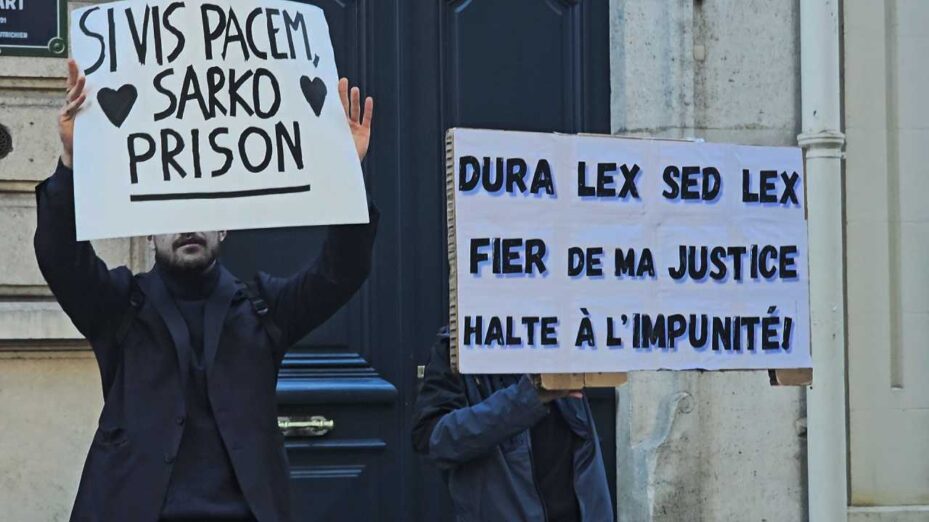 SI VIS PACEM,
SARKO
PRISON
DURA LEX SED LEX
FIER DE MA JUSTICE
HALTE À L'IMPUNITÉ!